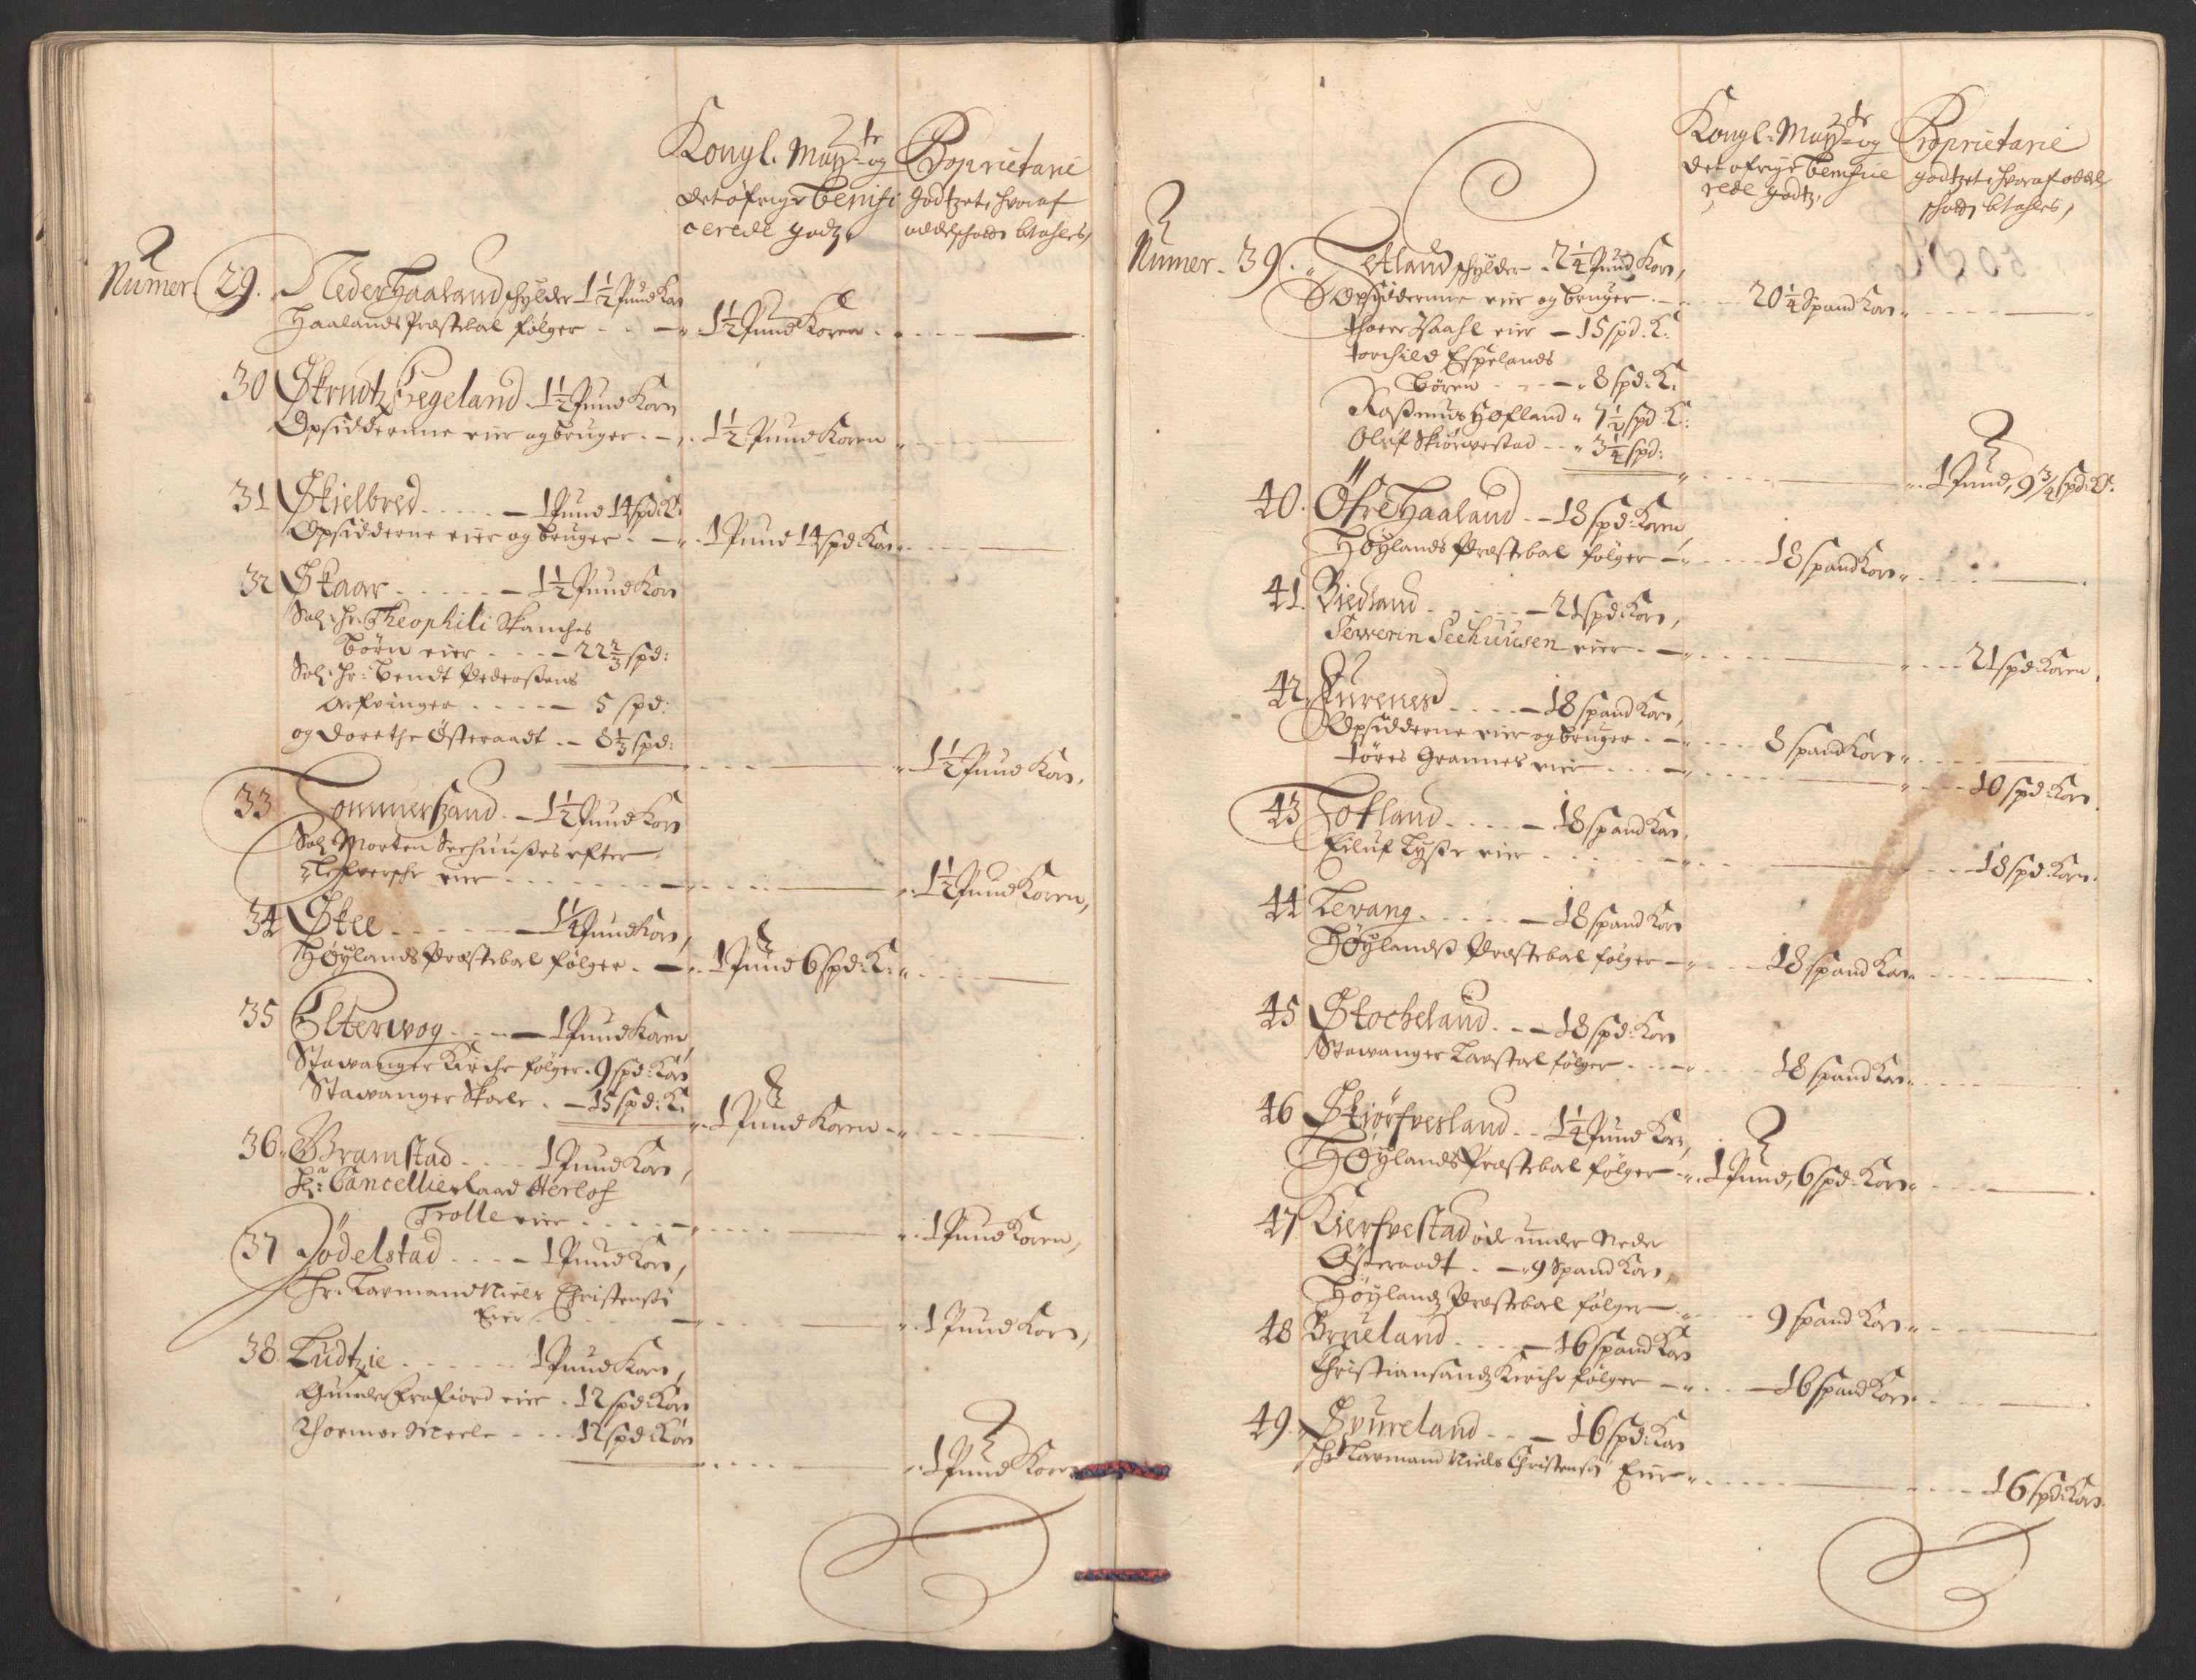 Kongl: Mayt:te og
det øfrige Benifi
cerede godz,
Proprietarie
godtzet, hvoraf
oddelschatt btahles,
Numer 29. NederHaaland schylder 1½ Pund Korn
Haalands Præstebol følger - - 1½ Pund Koren
30 Skrudtz Hegeland 1½ Pund Korn
Opsidderne eier og bruger - 1½ Pund Koren
31 Skielbred - - - - 1 Pund 14 spd: K:
Opsidderne eier og bruger - 1 Pund 14 spd: Korn
32 Skaar - - - - - 1½ Pund Korn
Sal: Hr: Theophili Skanches
börn eier - - - - 22⅔ spd:
Sal: Hr: Bendt Pederßens
Arfvinger - - - - 5 spd:
og Dorethe Österaadt - - 8⅓ spd:
1½ Pund Korn,
33 Sommersand - 1½ Pund Korn
Sal: Morten Seehuußes efter-
lefversche eier - - - - - - 1½ Pund Koren,
34 Skee - - - - - 1¼ Pund Korn,
Høylands Præstebol følger - 1 Pund 6 spd: K:
35 Elterwog - - - 1 Pund Koren
Stawanger Kirche følger - 9 spd: Korn
Stawanger Skoele - - 15 spd: K:
1 Pund Koren
36. Bramstad - - - - 1 Pund Korn,
Hr: Cancellie Raad Herlof
Trolle eier - - - - - 1 Pund Koren,
37 Jödelstad - - - - 1 Pund Korn,
Hr: Laumand Niels Christensen
Eier - - - - - 1 Pund Korn,
38. Ludtzie - - - - - - 1 Pund Korn,
Gunder Frafiord eier - 12 spd: Korn
Thormoe Meele - - - 12 spd: Korn
1 Pund Koren
Kongl: Mayt:te og
det øfrige Benificie
rede godtz,
Proprietarie
godtzet, hvoraf oddel
schatt btahles,
Numer - 39. Tetland schylder - 2¼ Pund Korn,
Opsidderne eier og bruger - - 20¼ Spand Korn
Thoer Waahl eier - 15 spd: K:
Torchild Espelands
Börn - - - - 8 spd: K:
Raßmus Hofland - 7½ spd K:
Oluf Skiørvestad - - 3¼ spd:
1 Pund, 9¾ spd: K:
40. ÖfreHaaland - - 18 spd: Koren
Høylands Præstebol følger - 18 spand Korn
41. Biedland - - - - 21 spd: Korn,
Severin Seehuusen eier - - 21 spd: Koren,
42. Lurenes - - - - 18 spand Korn,
Opsidderne eier og bruger - - 8 spand Korn
Töres Grannes eier - - - 10 spd: Korn.
43 Fotland - - - - 18 spand Korn,
Eiluf Tyße eier - - - - - 18 spd: Korn.
44 Levang - - - - - 18 spand Korn
Høylands Præstebol følger - 18 spand Korn
45 Stocheland - - - 18 spd: Korn
Stawanger Laustol følger - - - 18 spand Korn
46 Skiörfvesland - - 1¼ Pund Korn,
Høylands Præstebol følger - 1 Pund, 6 spd: Korn
47 Kierfvestad øde under Neder
Østeraadt - - 9 Spand Korn,
Høylands Præstebol følger - - 9 spand Korn
48 Brueland - - - - 16 spand Korn
Christiansandz Kirche følger - - 16 spand Korn
49. Svureland - - - 16 spd: Korn
Hr: Laumand Niels Christensen Eier - - - 16 spd: Korn